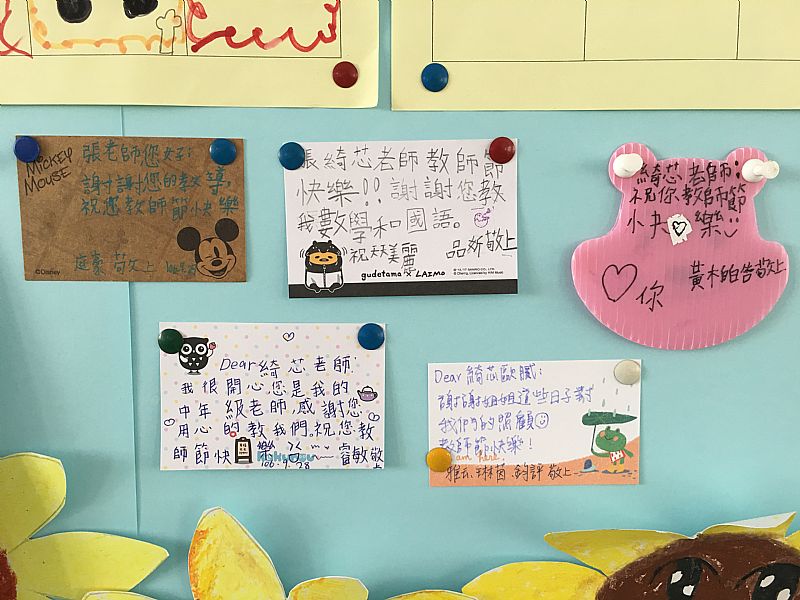 MICKEY
MOUSE
張老師您好:
謝謝您的教導,
祝您教師節快樂
敬上
©Disney
張綺芯老師教師節
快樂!!謝謝您教
我數學和國語。
祝天天美麗
品妡敬上
gudetama x LAIMO
綺芯老師:
祝你教師節
快樂
你
敬上
Dear綺芯老師:
我很開心您是我的
中年級老師,感謝您
用心的教我們。祝您教
師節快樂
106.9.28
睿敏敬
上
Dear綺芯歐膩:
謝謝姐姐這些日子對
我們的照顧
教師節快樂!
I am here.
敬上